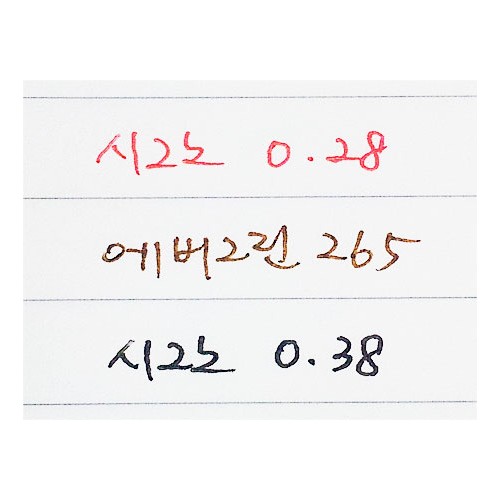 시그노 0.28
에버그린 265
시그노 0.38